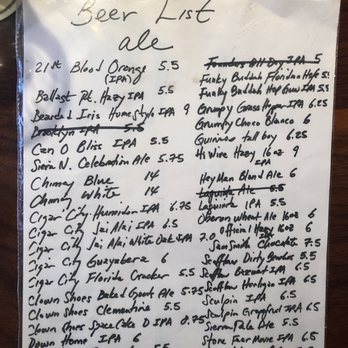 Beer List
ale
21st Blood Orange 5.5
(IPA)
Ballast Pt. Hazy IPA 5.5
Bearded Iris Homestyle IPA 9
Brooklyn IPA 5.5
Can O Bliss IPA 5.5
Sierra N. Celebration Ale 5.75
Chimay Blue 14
Chimay White 14
Cigar City Humidor IPA 6.75
Cigar City Jai Alai IPA 6.5
Cigar City Jai Alai White Oak IPA 7.0
Cigar City Guayabera 6
Cigar City Florida Cracker 5.5
Clown Shoes Baked Goods Ale 5.75
Clown Shoes Clementine 5.5
Clown Shoes Space Cake D IPA 8.75
Down Home IPA 6
Founders All Day IPA 5.5
Funky Buddah Floridian Hefe 5.5
Funky Buddah Hop Gun IPA 5.5
Grumpy Grasshopper IPA 6.25
Grumpy Choco Blanco 6
Guinness tall boy 6.25
Hi Wire Hazy 16oz 9
IPA
Hey Man Bland Ale 6
Lagunita Ale 5.5
Lagunira IPA 5.5
Oberon Wheat Ale 16oz 6
Official Hazy 16oz 6
Sam Smith Chocolate 7.5
Scofflaw Dirty Beaches 5.5
Scofflaw Basement IPA 6.5
Scofflaw Hooligan IPA 6.5
Sculpin IPA 6.5
Sculpin Grapefruit IPA 6.5
Sierra Pale Ale 5.5
Stone Fear Movie IPA 6.5